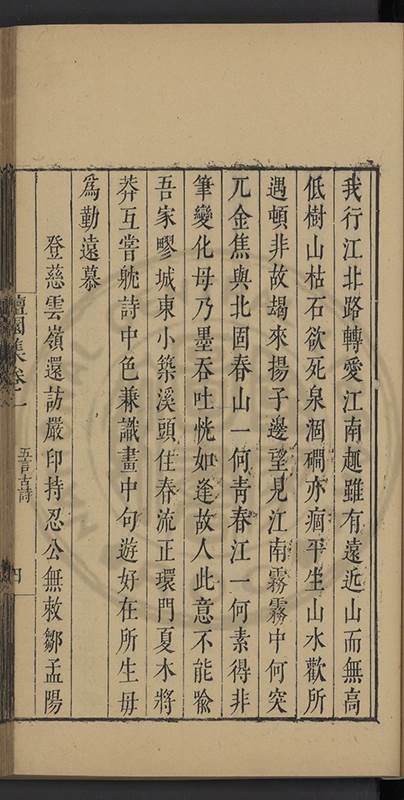 我行江北路轉愛江南趣雖有遠近山而無高
低樹山枯石欲死泉涸磵亦痼平生山水歡所
遇頓非故朅來揚子邊望見江南霧霧中何突
兀金焦與北固春山一何靑春江一何素得非
筆變化毋乃墨吞吐恍如逢故人此意不能喩
吾家疁城東小築溪頭住春流正環門夏木將
莽互嘗躭詩中色兼識畫中句遊好在所生毋
爲勤遠慕
登慈雲嶺還訪嚴印持忍公無敕鄒孟陽
檀園集卷一
五言古詩
四